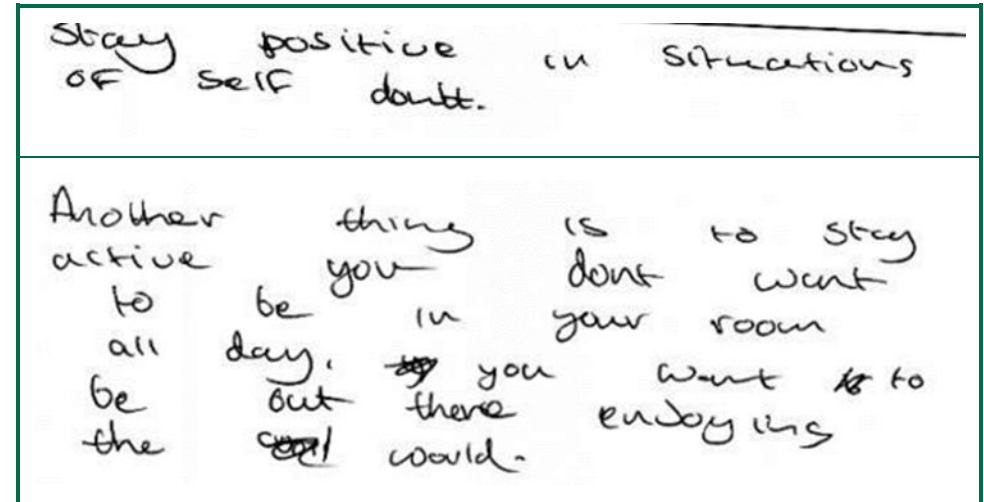 Stay positive in situations
of self doubt.
Another thing is to stay
active you dont want
to be in your room
all day. you want to
be out there enjoying
the would.